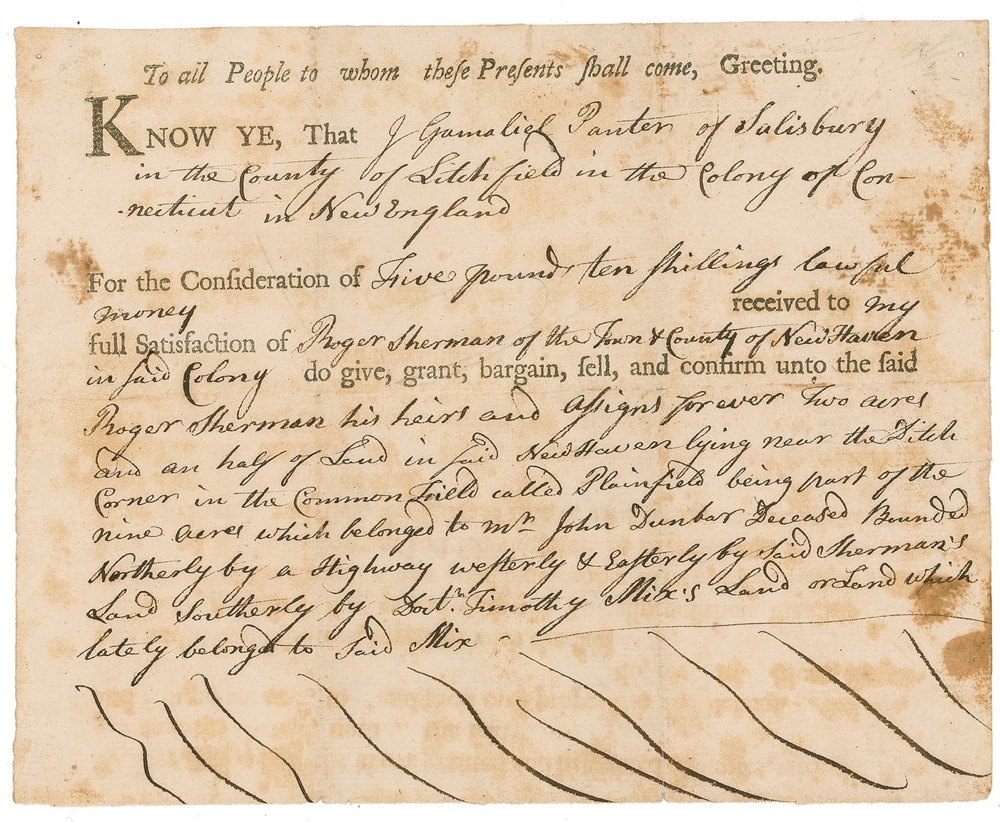 To all People to whom theſe Preſents ſhall come, Greeting.
KNOW YE, That I Gamaliel Panter of Salisbury
in the County of Litchfield in the Colony of Con-
-necticut in New England
For the Conſideration of Five pounds ten ſhillings lawful
money received to my
full Satisfaction of Roger Sherman of the Town & County of New Haven
in ſaid Colony do give, grant, bargain, ſell, and confirm unto the ſaid
Roger Sherman his heirs and Aſsigns forever Two acres
and an half of Land in ſaid New Haven lying near the Ditch
Corner in the Common Field called Plainfield being part of the
nine acres which belonged to mr. John Dunbar Deceased Bounded
Northerly by a Highway weſterly & Eaſterly by Said Sherman's
Land Southerly by Doctr. Timothy Mix's Land or Land which
lately belonged to Said Mix -